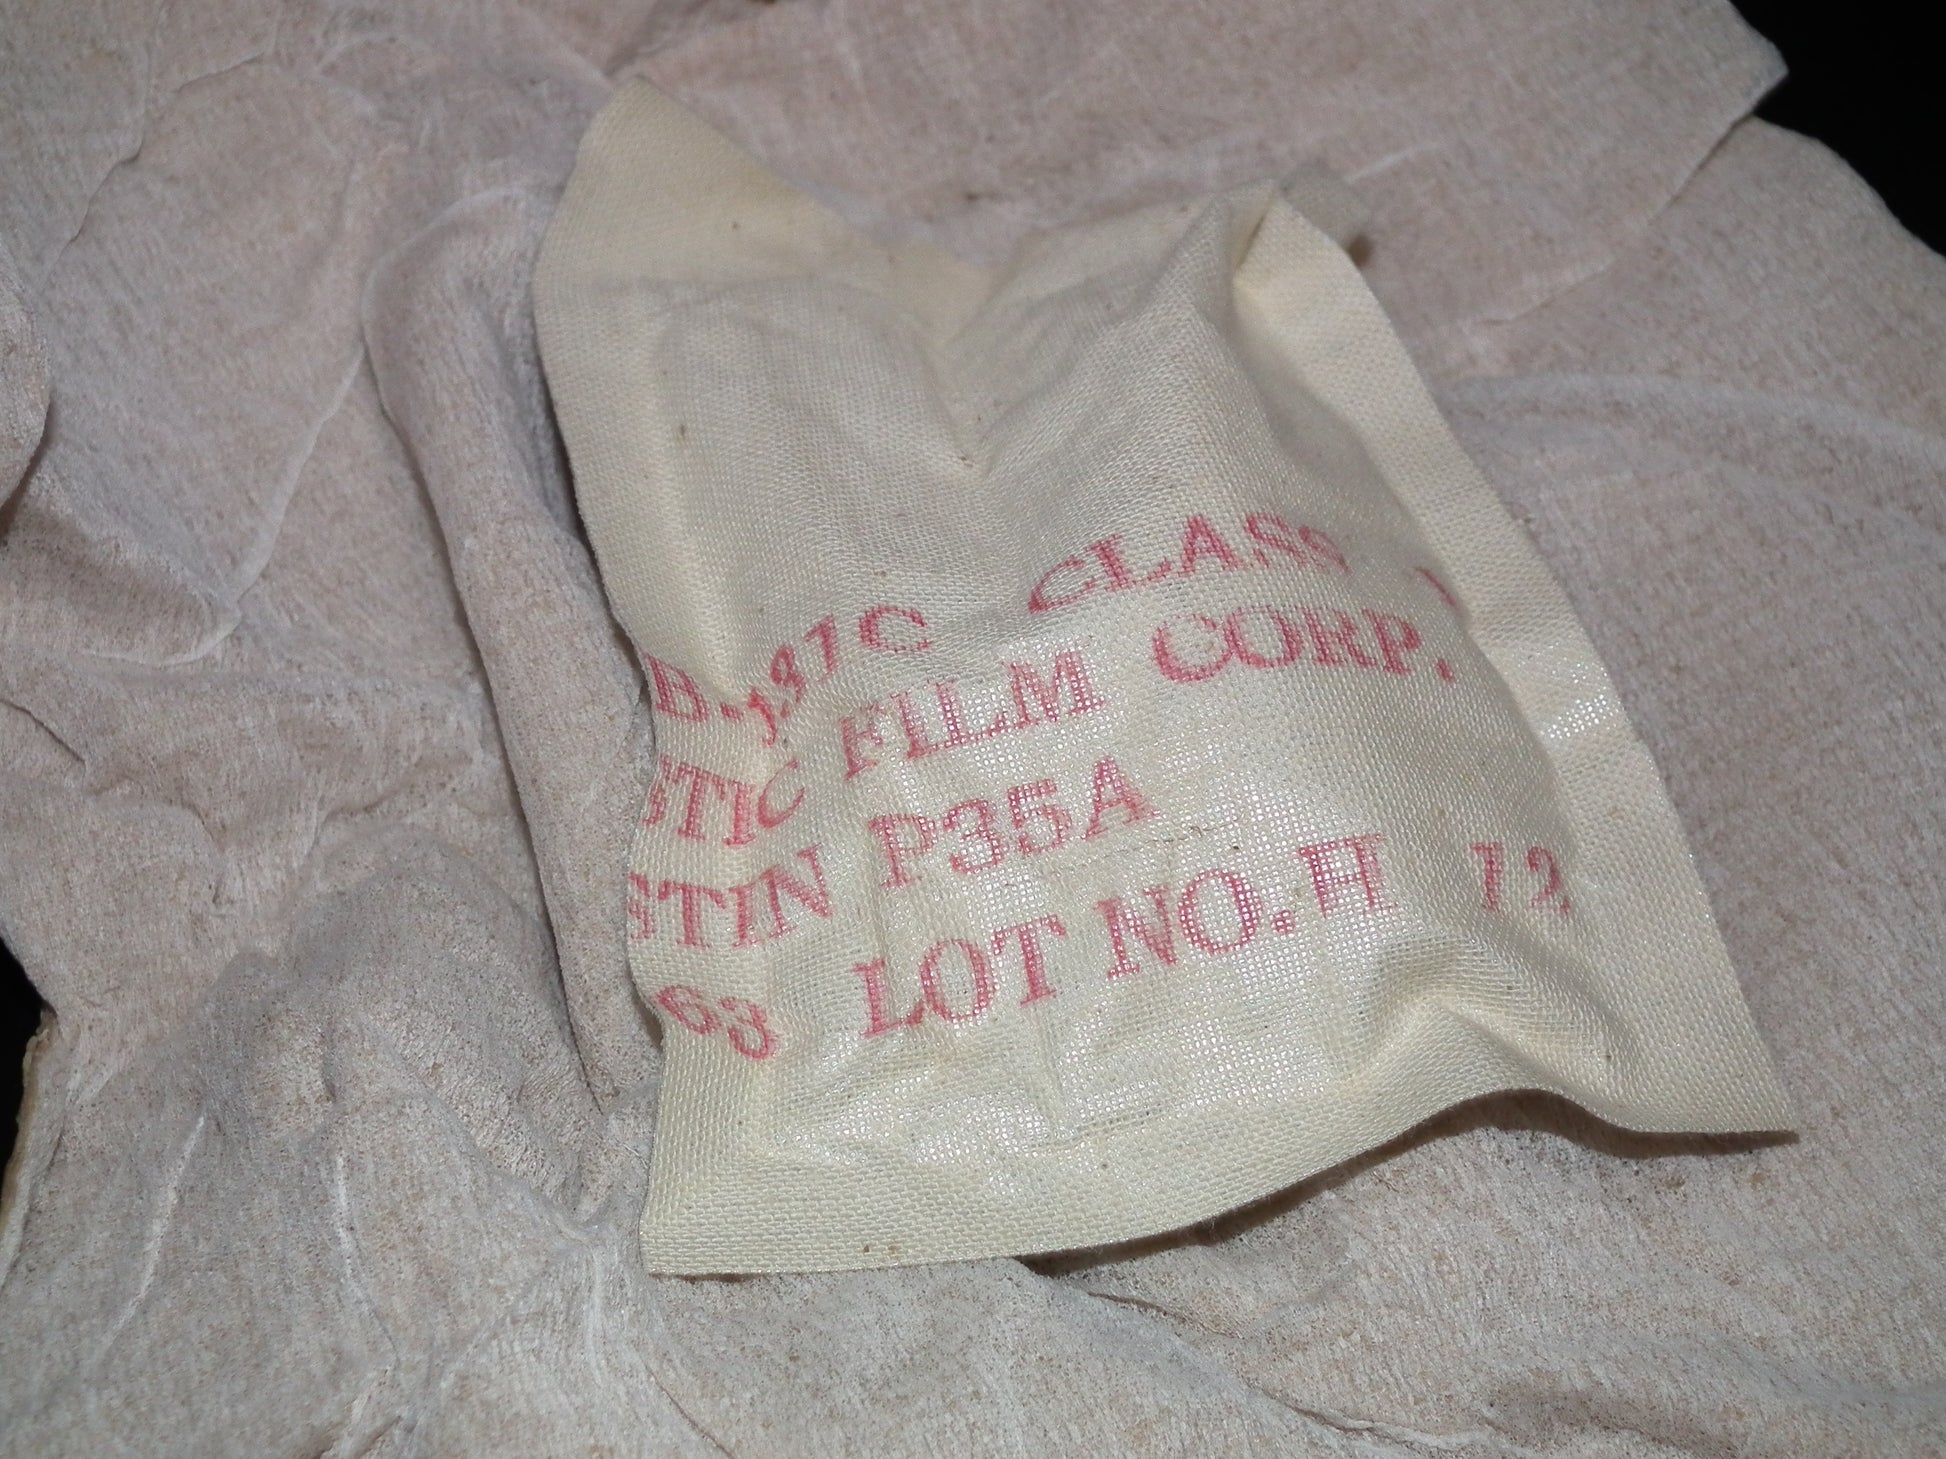 B-131C CLASS 1
STIC FILM CORP.
STIN P35A
63 LOT NO. H 12